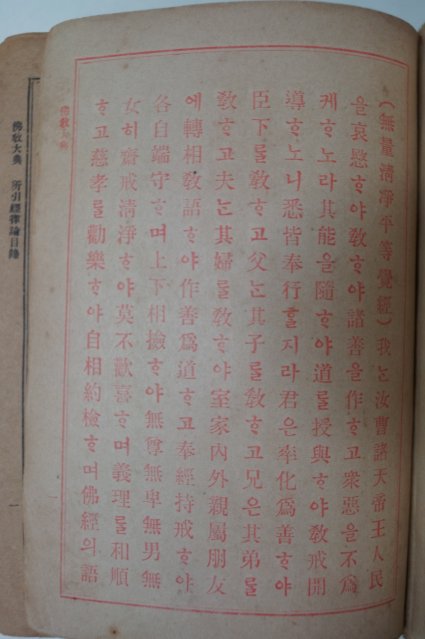 (無量淸淨平等覺經) 我는汝曹諸天帝王人民
을哀愍ᄒᆞ야敎ᄒᆞ야諸善을作ᄒᆞ고衆惡을不爲
케ᄒᆞ노라其能을隨ᄒᆞ야道를授與ᄒᆞ야敎戒開
導ᄒᆞ노니悉皆奉行ᄒᆞᆯ지라君은率化爲善ᄒᆞ야
臣下를敎ᄒᆞ고父는其子를敎ᄒᆞ고兄은其弟를
敎ᄒᆞ고夫는其婦를敎ᄒᆞ야室家內外親屬朋友
에轉相敎語ᄒᆞ야作善爲道ᄒᆞ고奉經持戒ᄒᆞ야
各自端守ᄒᆞ며上下相檢ᄒᆞ야無尊無卑無男無
女히齋戒淸淨ᄒᆞ야莫不歡喜ᄒᆞ며義理를和順
ᄒᆞ고慈孝를勸樂ᄒᆞ야自相約檢ᄒᆞ며佛經의語
佛敎大典
佛敎大典 所引經律論目錄